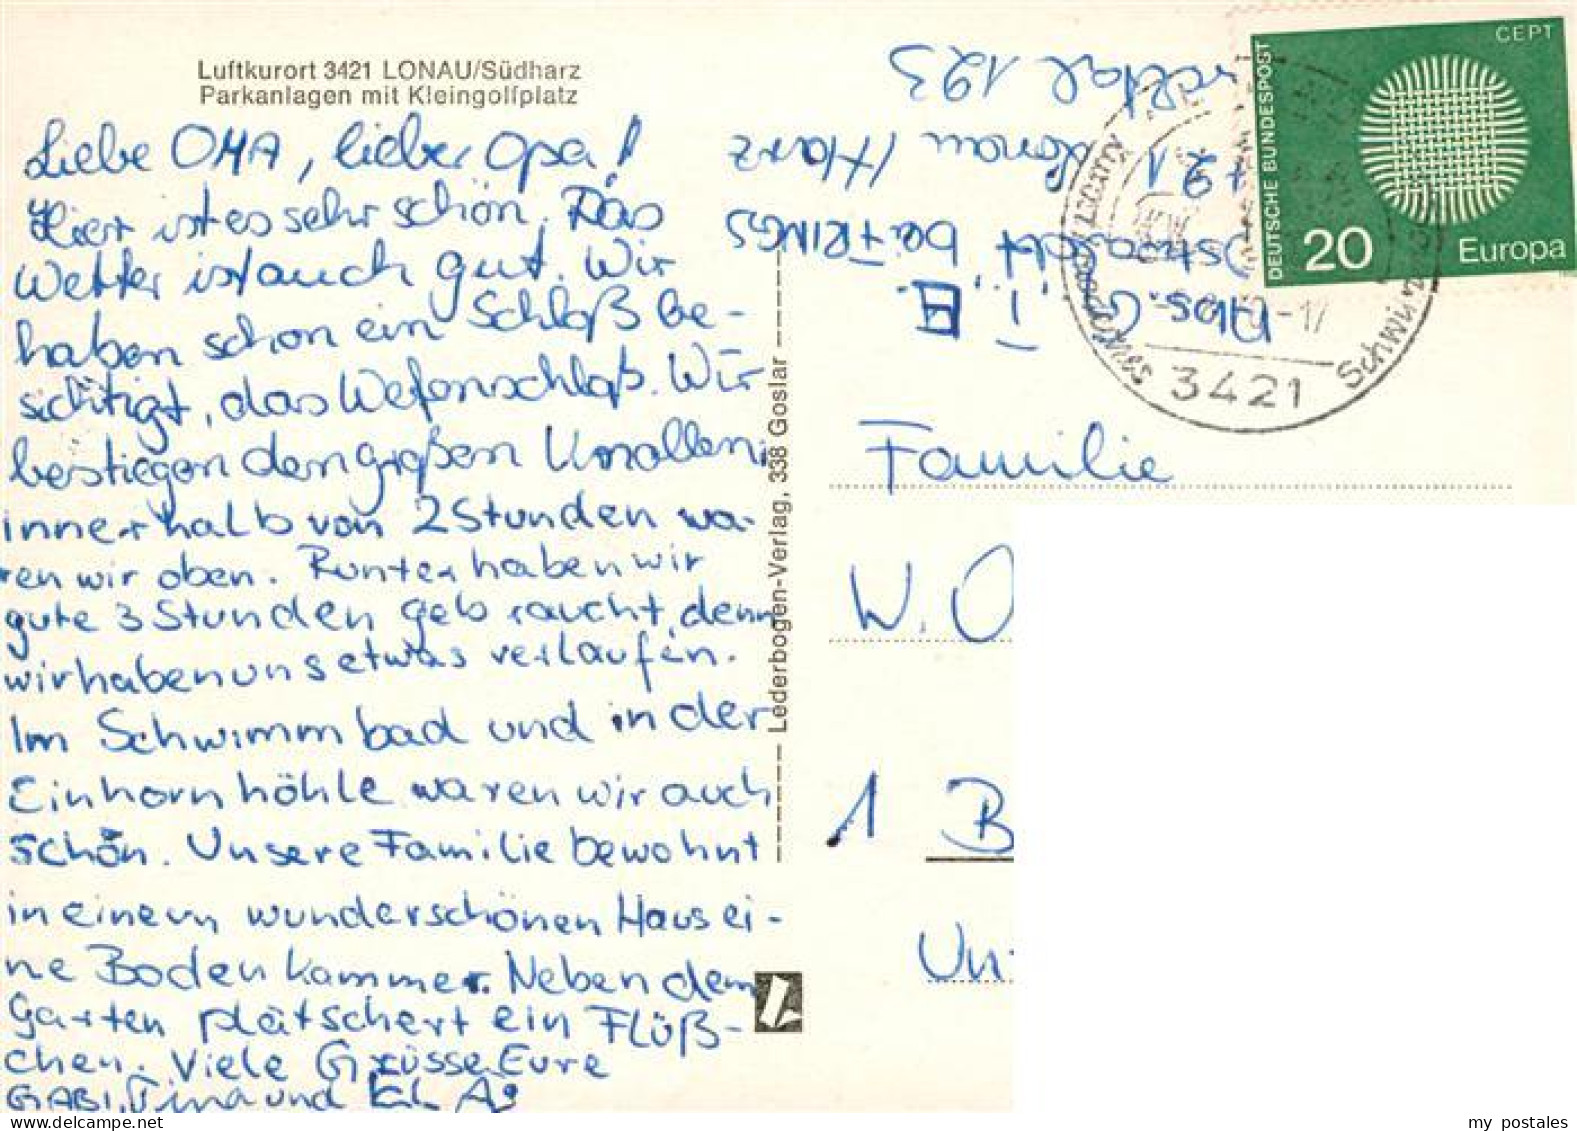 Luftkurort 3421 LONAU/Südharz
Parkanlagen mit Kleingolfplatz
Liebe OMA, lieber Opa!
Hier ist es sehr schön. Das
Wetter ist auch gut. Wir
haben schon ein Schloß be-
sichtigt, das Welfenschloß. Wir
bestiegen den großen Knollen,
innerhalb von 2 Stunden wa-
ren wir oben. Runter haben wir
gute 3 Stunden gebraucht, denn
wir haben uns etwas verlaufen.
Im Schwimmbad und in der
Einhornhöhle waren wir auch
schon. Unsere Familie bewohnt
in einem wunderschönen Haus ei-
ne Bodenkammer. Neben dem
Garten plätschert ein Flüß-
chen. Viele Grüsse Eure
GABI, Tina und
Lederbogen-Verlag, 338 Goslar
Abs. G.
bei TRINGS
Lonau/Harz
193
DEUTSCHE BUNDESPOST
CEPT
20
Europa
3421
Familie
W. O
1 B
Un
my postales